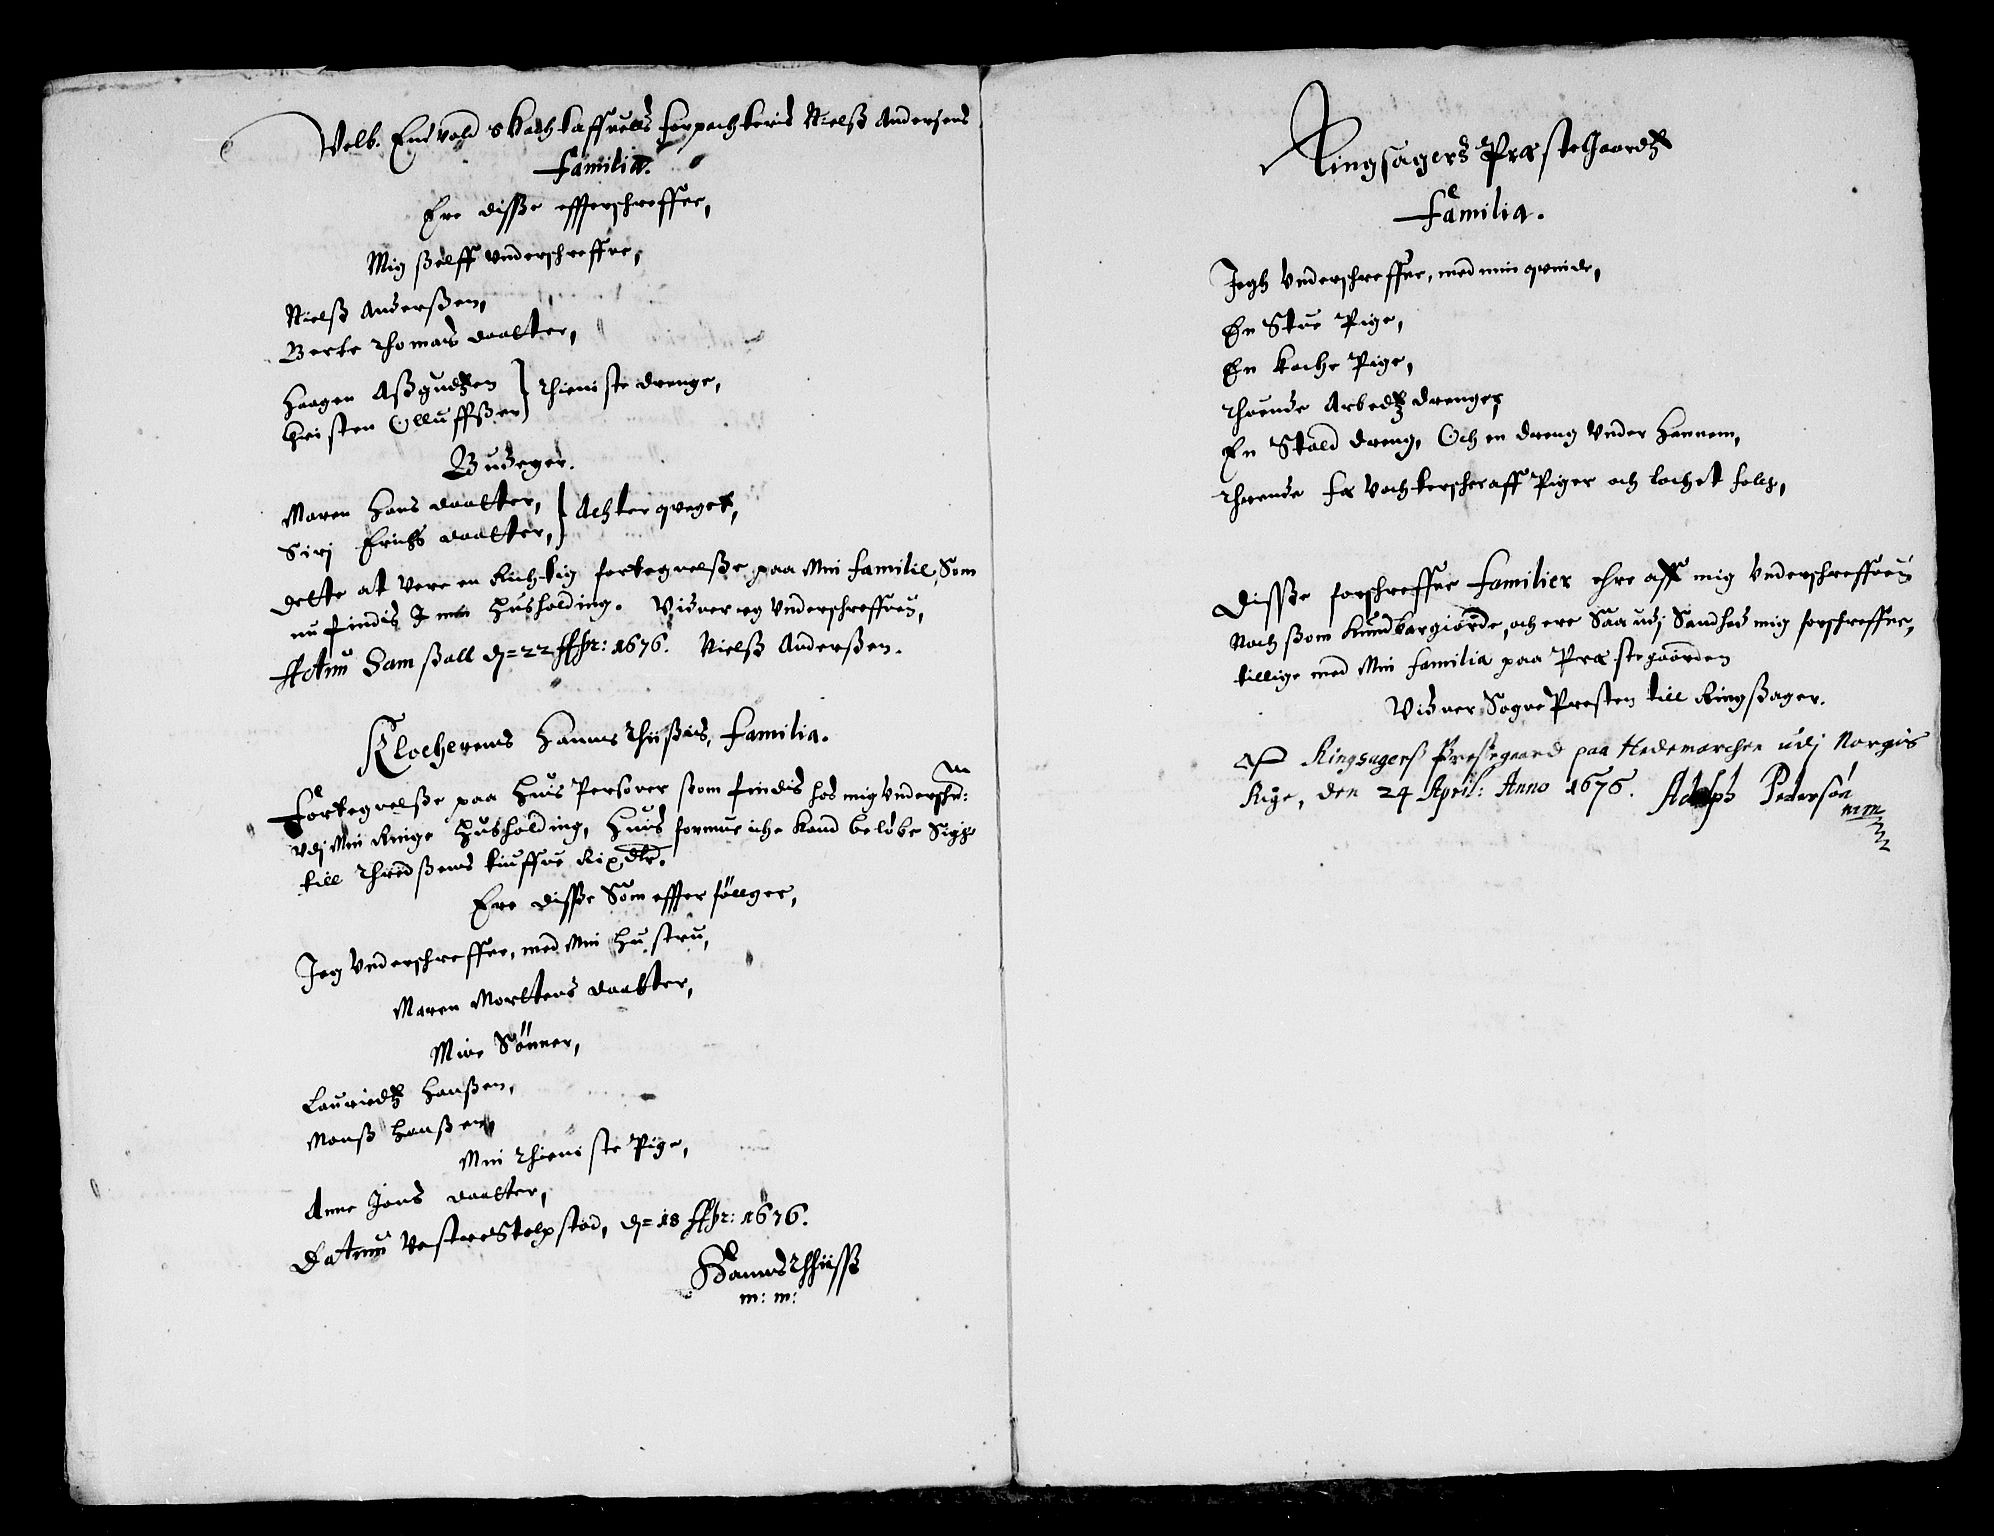 Velb. Endvold Skachtaffuells forpachteris Nielß Andersens
Familia.
Ere disße effterschreffne,
Mig ßelff underschreffne,
Nielß Anderßen,
Berte Thomas daatter,
Haagen Aßgudtzen } Thieniste drenge,
Christen Olluffßen
Budeyer.
Maren Hans daatter, } Achter qveget,
Siri Erichs daatter,
Dette at vere en Richtig fortegnelße paa Min familie, Som
nu findis I min Husholding. Vidner ieg Underschreffven,
Actum Samßall d= 22 Apr: 1676. Nielß Anderßen.
Klocherens Hanns Thißøns, Familia.
Fortegnelße paa Huis Persohner ßom findis hos mig Underschr:
udj Min Ringe Husholding, Huis formue iche kand beløbe Sig
till Thredßens tiuffue Rixdlr.
Ere disße Som effterføllger,
Jeg Underschreffne, med Min Hustru,
Maren Morttens daatter,
Mine Sønner,
Lauridtz Hanßen,
Monß Hanßen,
Min Thieniste Pige,
Anne Jons daatter,
Datum Vestre Stelpstad, d= 18 Apr: 1676.
Hanns Thiisß
m: m:
Ringsagers Præstegaardtz
Familia.
Jegh Underschreffne, med min qvinde,
En Stue Pige,
En Koche Pige,
Thuende Arbedtz drenge,
En Stald dreng, Och en dreng Under Hannem,
Thuende Fæ Piger och
Disße forschreffne Familier ehre aff mig Underschreffven
Noch ßom Kundbargiorde, och ere Saa udj Sandhed mig forschreffne,
tillige med Min familia paa Præstegaarden
Vidner SognePresten till Ringßager.
Aff Ringsagers Prestegaard paa Hedemarchen udj Norgis
Rige, den 24 April: Anno 1676. Adolph Pedersøn
mm